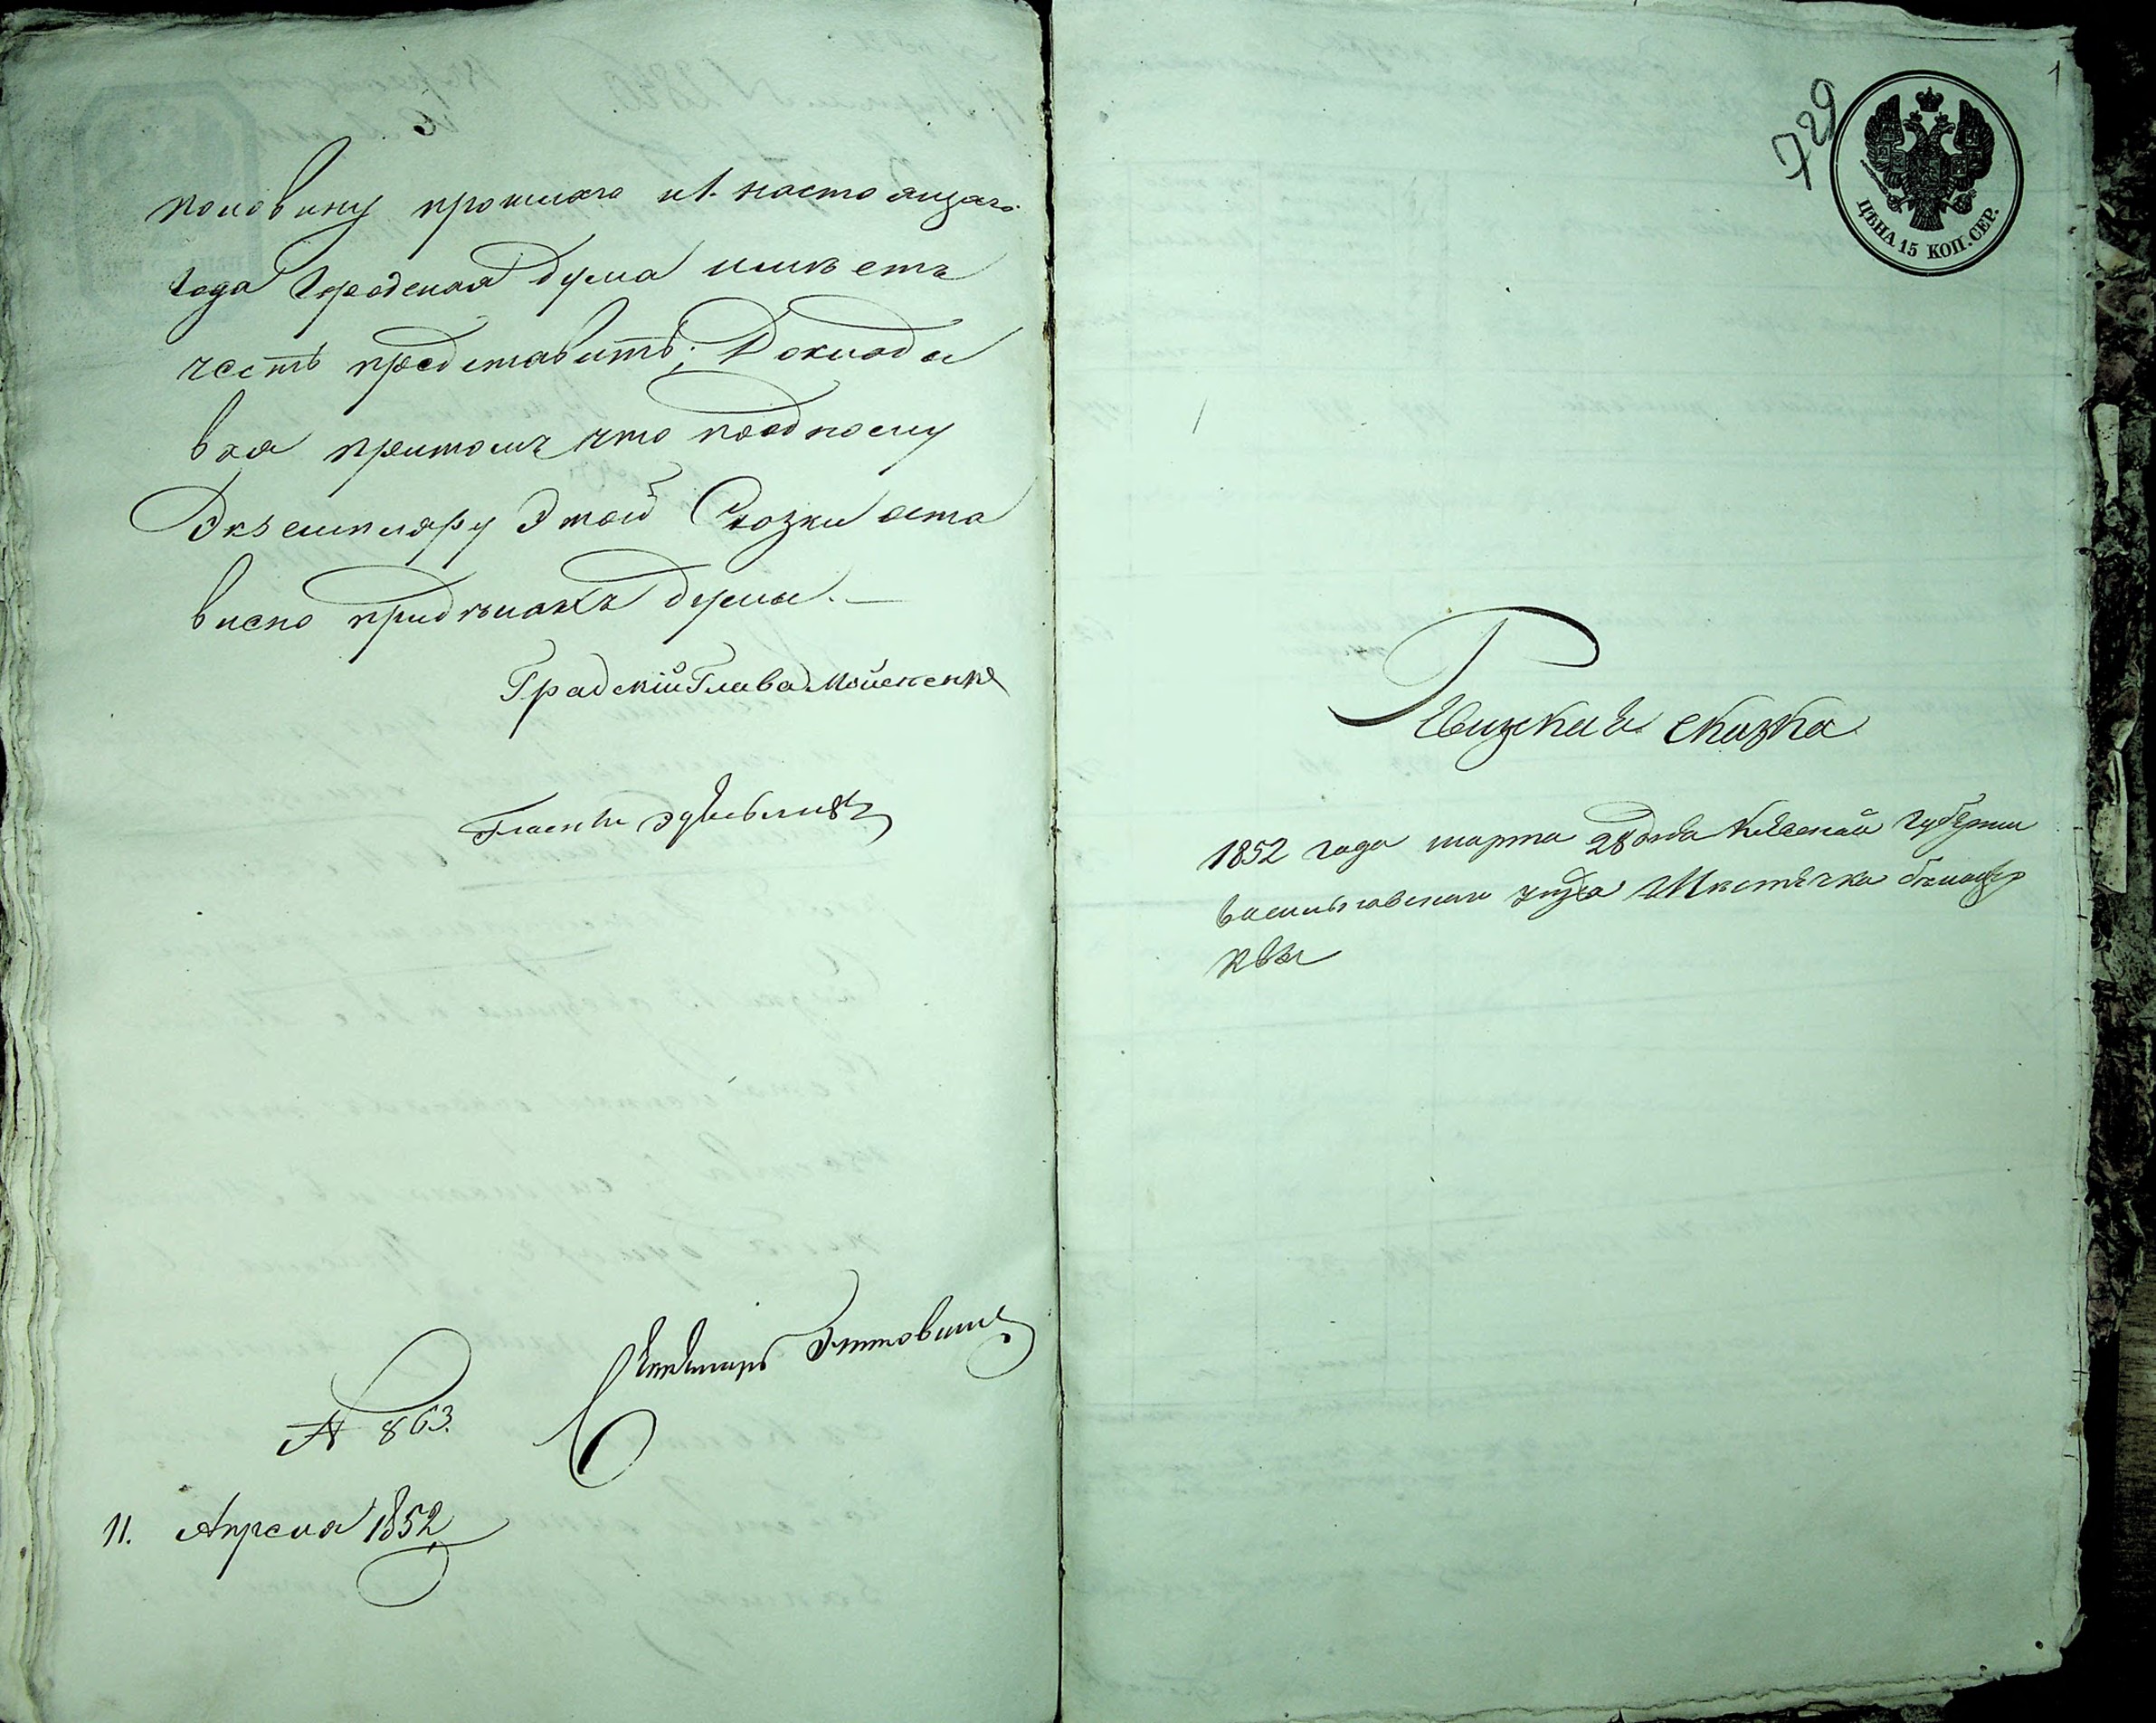 половину прошлаго и 1. настоящаго
года Городская Дума имѣетъ
честь представить; Доклады
вая притомъ что по одному
Экземпляру Этой Сказки оста
влено при дѣлахъ думы.—
Градскій Глава
Гласный
Секретарь
№ 863.
11. Апреля 1852
1
729
ЦѢНА 15 КОП. СЕР.
Ревизкая сказка
1852 года марта 28 дня Кіевской Губернии
васильковскаго уезда Мѣстечка бѣлоцер
квы